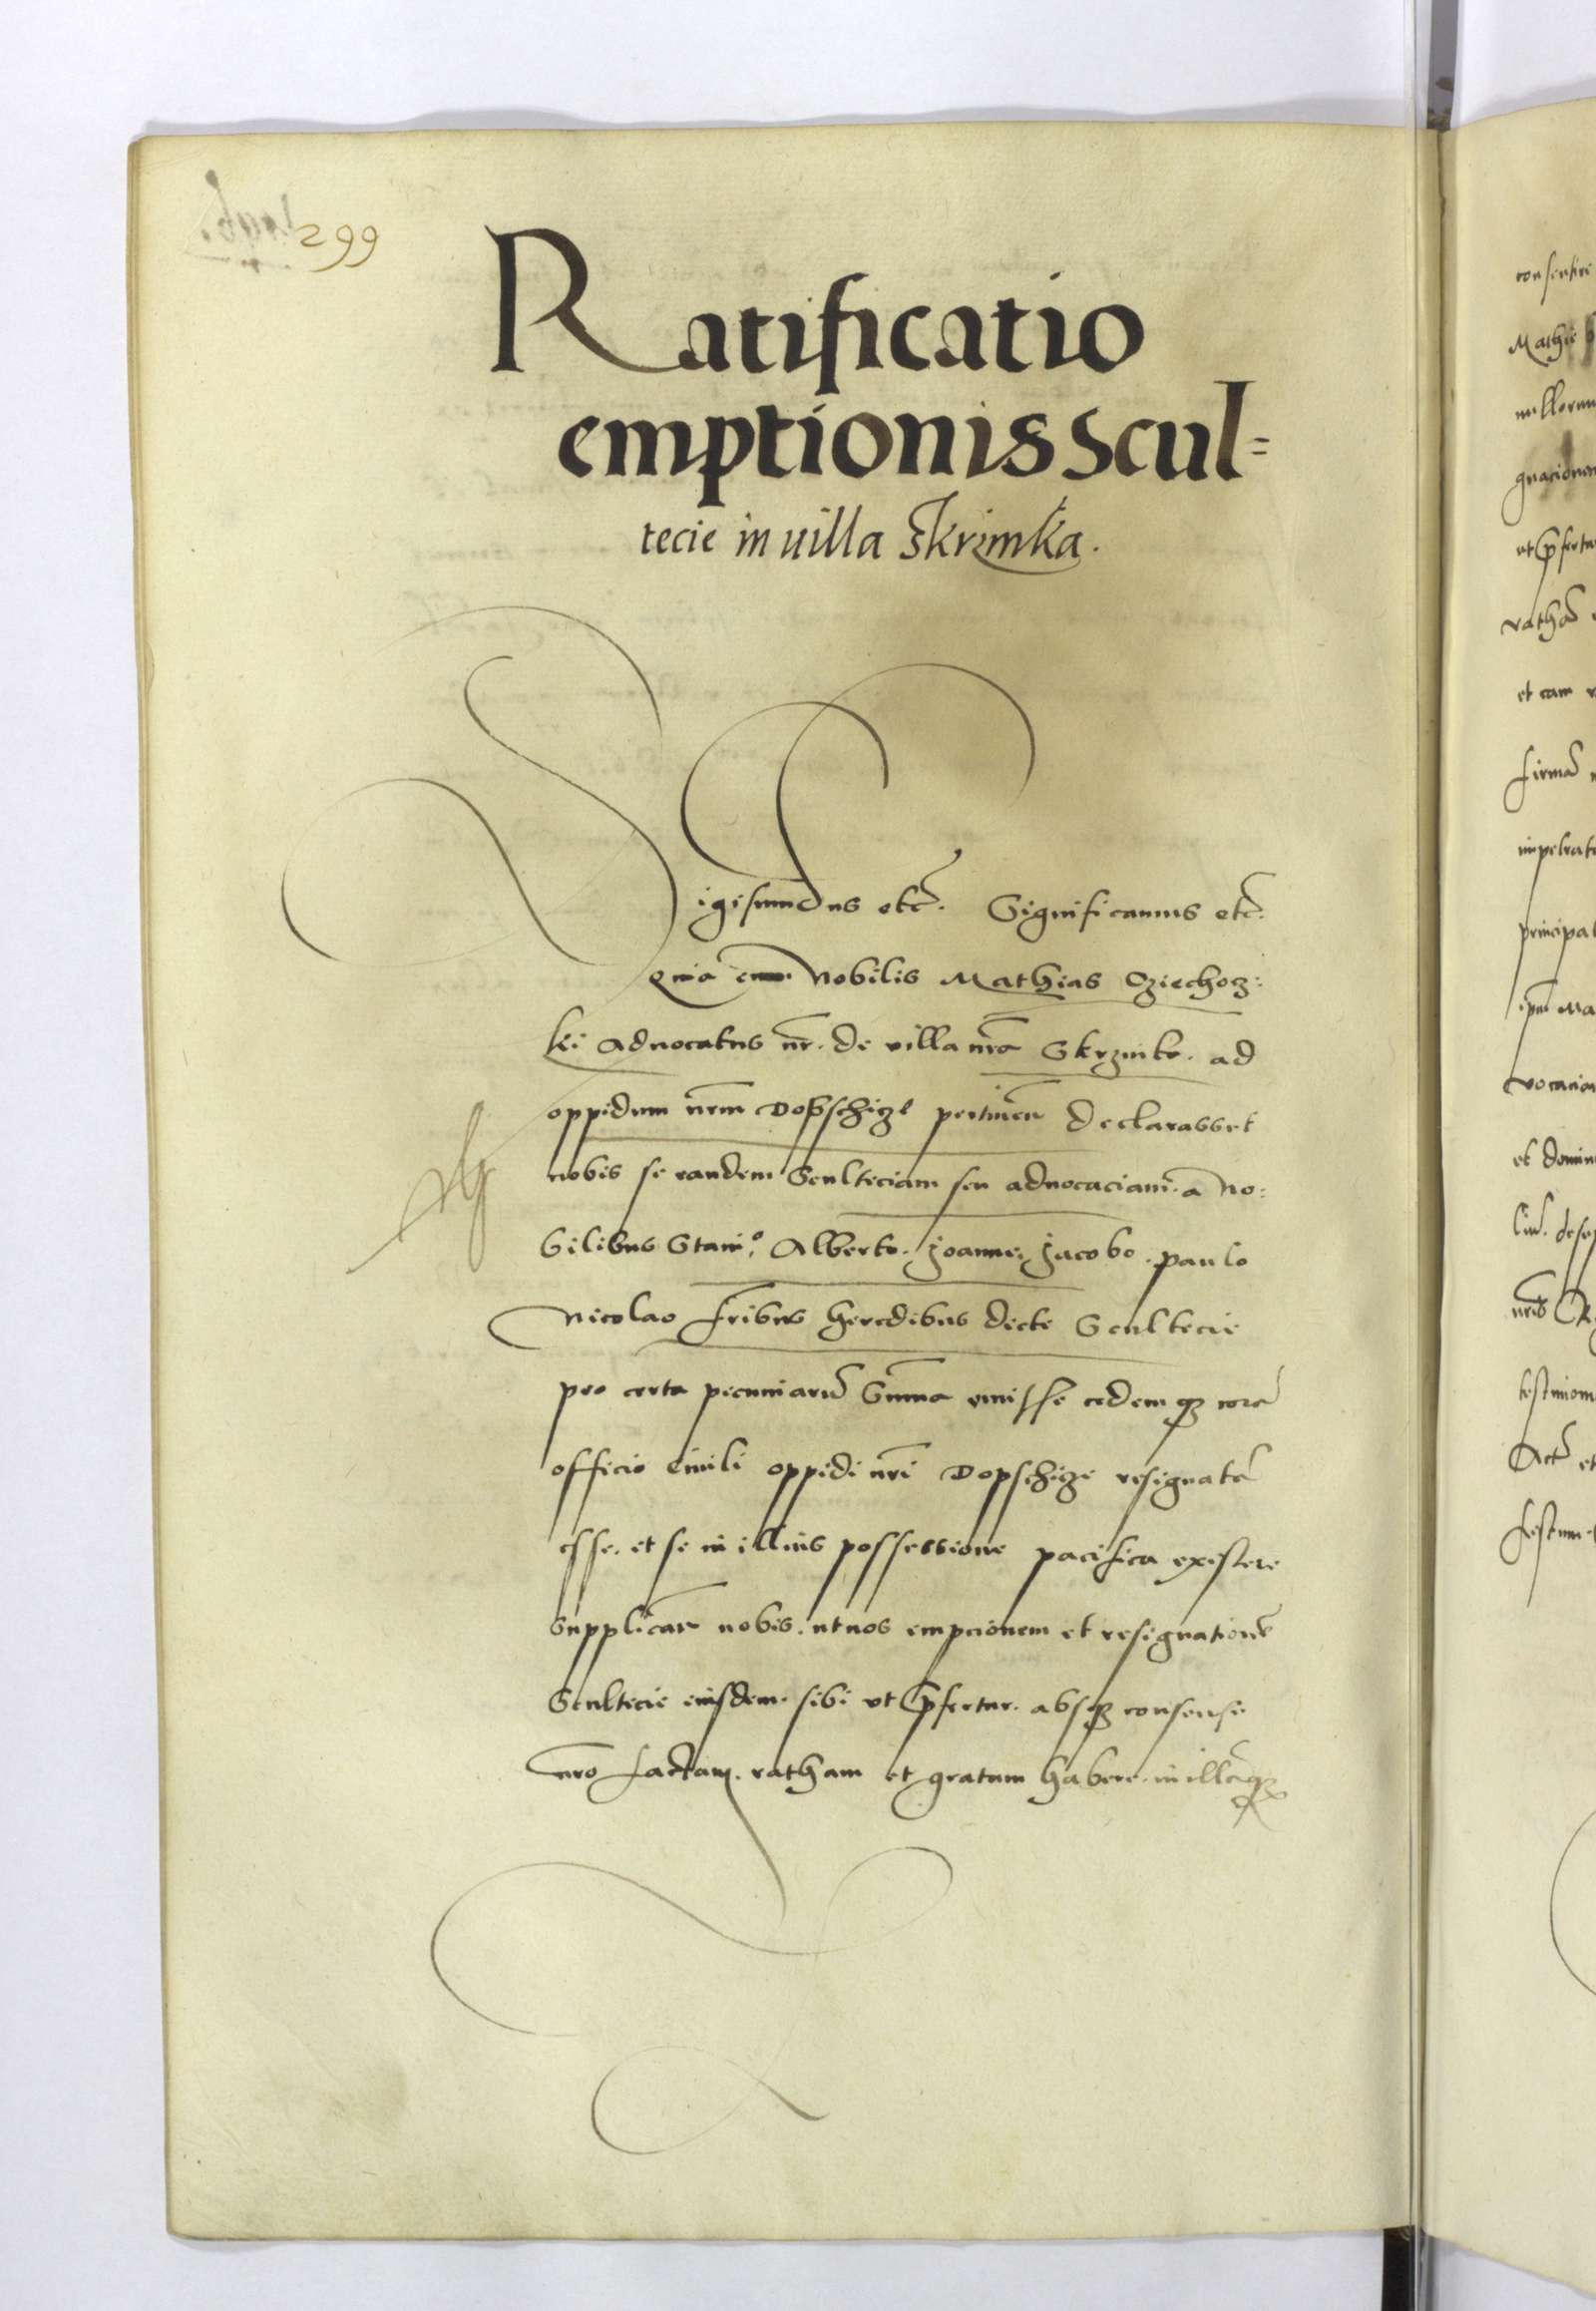 299
Ratificatio
emptionis scul=
tecie in uilla Skrzinka.
Sigismundus etc̃. Significamus etc̃.
Quia cum Nobilis Mathias Cziechoz:
ki Aduocatus nr̃. de villa nrã Skrzinko. ad
oppidum nr̃m Dobschize pertineñ declarasset
nobis se eandem Sculteciam seu aduocaciam. a No:
bilibus Stani.º Alberto. Joanne. Jacobo. paulo
Nicolao fr̃ibus heredibus dicte Scultecie
pro certa pecuniarũ Sum̃a emisse eidemqꝫ corã
officio ciuili oppidi nr̃i Dopschize resignatã
esse. et se in illius possessione pacifica existere
Supplicar̃ nobis. ut nos empcionem et resignationẽ
Scultecie eiusdem. sibi vt p̃fertur. absqꝫ consensu
nr̃o factam. ratham et gratam habere. in illãqꝫ
consentire
Mathie
nullorum
gnacionem
ut p̃fertur
rathã
et eam
firmã
impetrat
principal
ip̃m Ma
vocacion
et domin
nr̃is
testimoni
Act̃ et
festum